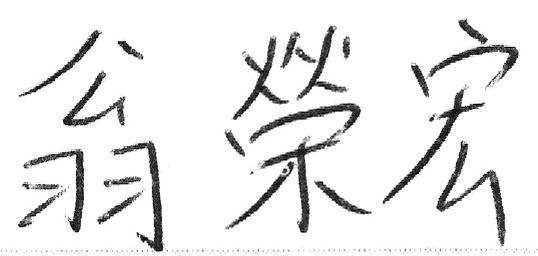 翁榮宏